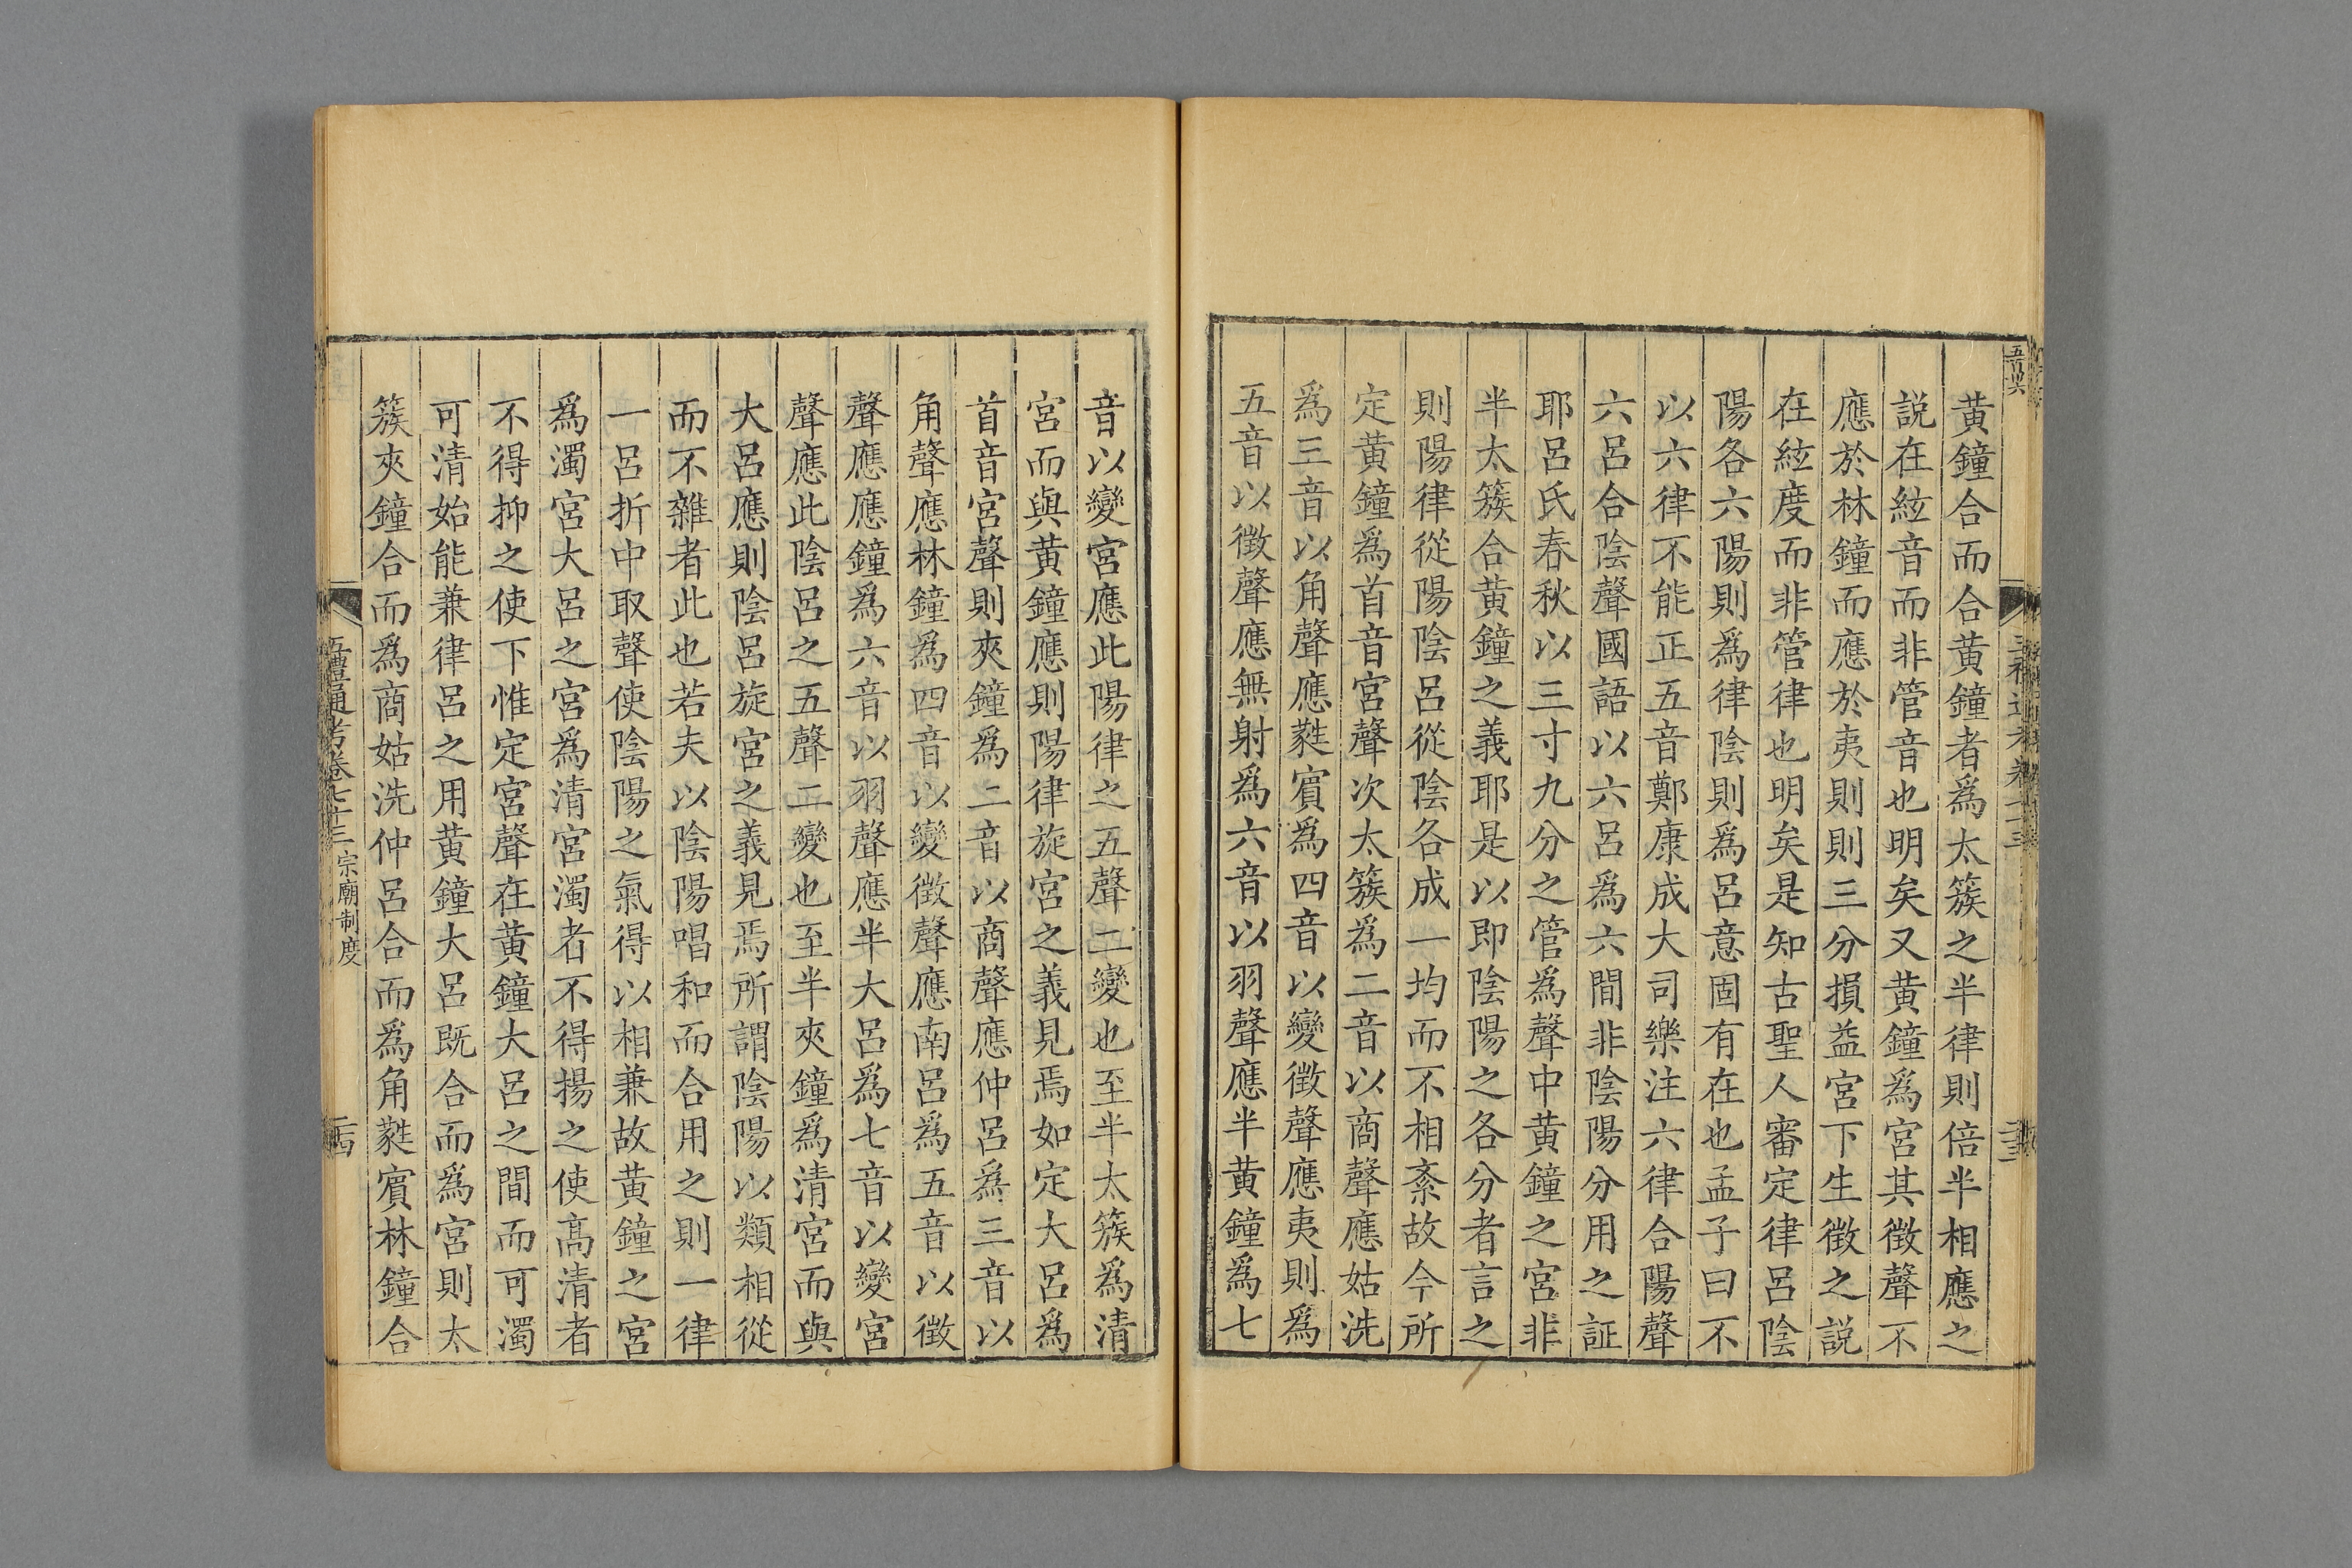 黃鐘合而合黃鐘者為太簇之半律則倍半相應之
説在絃音而非管音也明矣又黃鐘為宮其徵聲不
應於林鐘而應於夷則則三分損益宮下生徵之説
在絃度而非管律也明矣是知古聖人審定律呂陰
陽各六陽則爲律陰則爲呂意固有在也孟子曰不
以六律不能正五音鄭康成大司樂注六律合陽聲
六呂合陰聲國語以六呂爲六間非陰陽分用之証
耶呂氏春秋以三寸九分之管爲聲中黃鐘之宮非
半太簇合黃鐘之義耶是以即陰陽之各分者言之
則陽律從陽陰呂從陰各成一均而不相紊故今所
定黃鐘爲首音宮聲次太簇爲二音以商聲應姑洗
爲三音以角聲應蕤賓爲四音以變徵聲應夷則爲
五音以徵聲應無射爲六音以羽聲應半黃鐘爲七
音以變宮應此陽律之五聲二變也至半太簇爲清
宮而與黃鐘應則陽律旋宮之義見焉如定大呂爲
首音宮聲則夾鐘爲二音以商聲應仲呂爲三音以
角聲應林鐘爲四音以變徵聲應南呂爲五音以徵
聲應應鐘爲六音以羽聲應半大呂爲七音以變宮
聲應此陰呂之五聲二變也至半夾鐘爲清宮而與
大呂應則陰呂旋宮之義見焉所謂陰陽以類相從
而不雜者此也若夫以陰陽唱和而合用之則一律
一呂折中取聲使陰陽之氣得以相兼故黃鐘之宮
爲濁宮大呂之宮爲清宮濁者不得揚之使高清者
不得抑之使下惟定宮聲在黃鐘大呂之間而可濁
可清始能兼律呂之用黃鐘大呂既合而爲宮則太
簇夾鐘合而爲商姑洗仲呂合而爲角蕤賓林鐘合
五禮通考卷七十三 宗廟制度 二十四